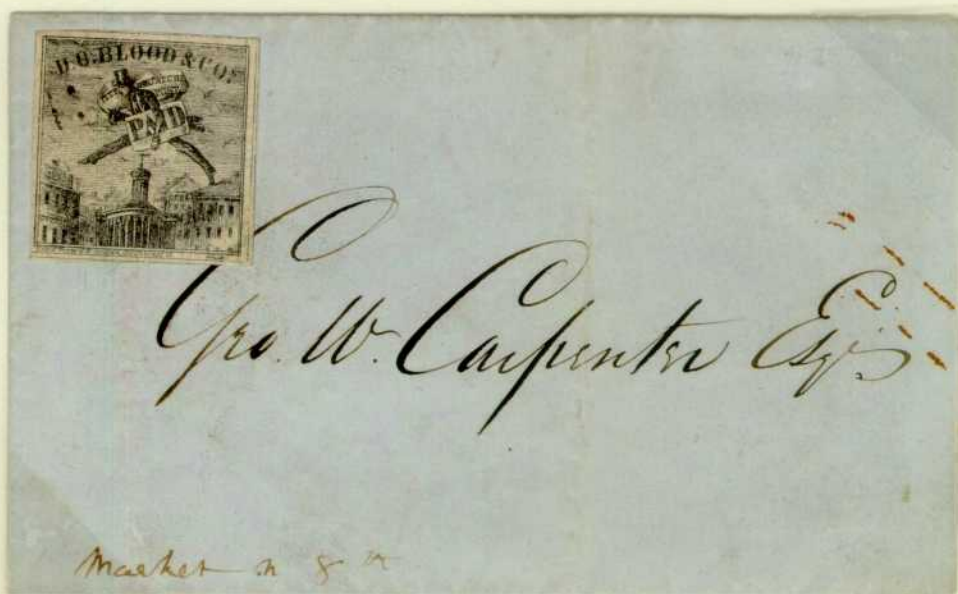 D.O. BLOOD & CO.
PAID
Geo. W. Carpenter Esqr.
Market n 8th